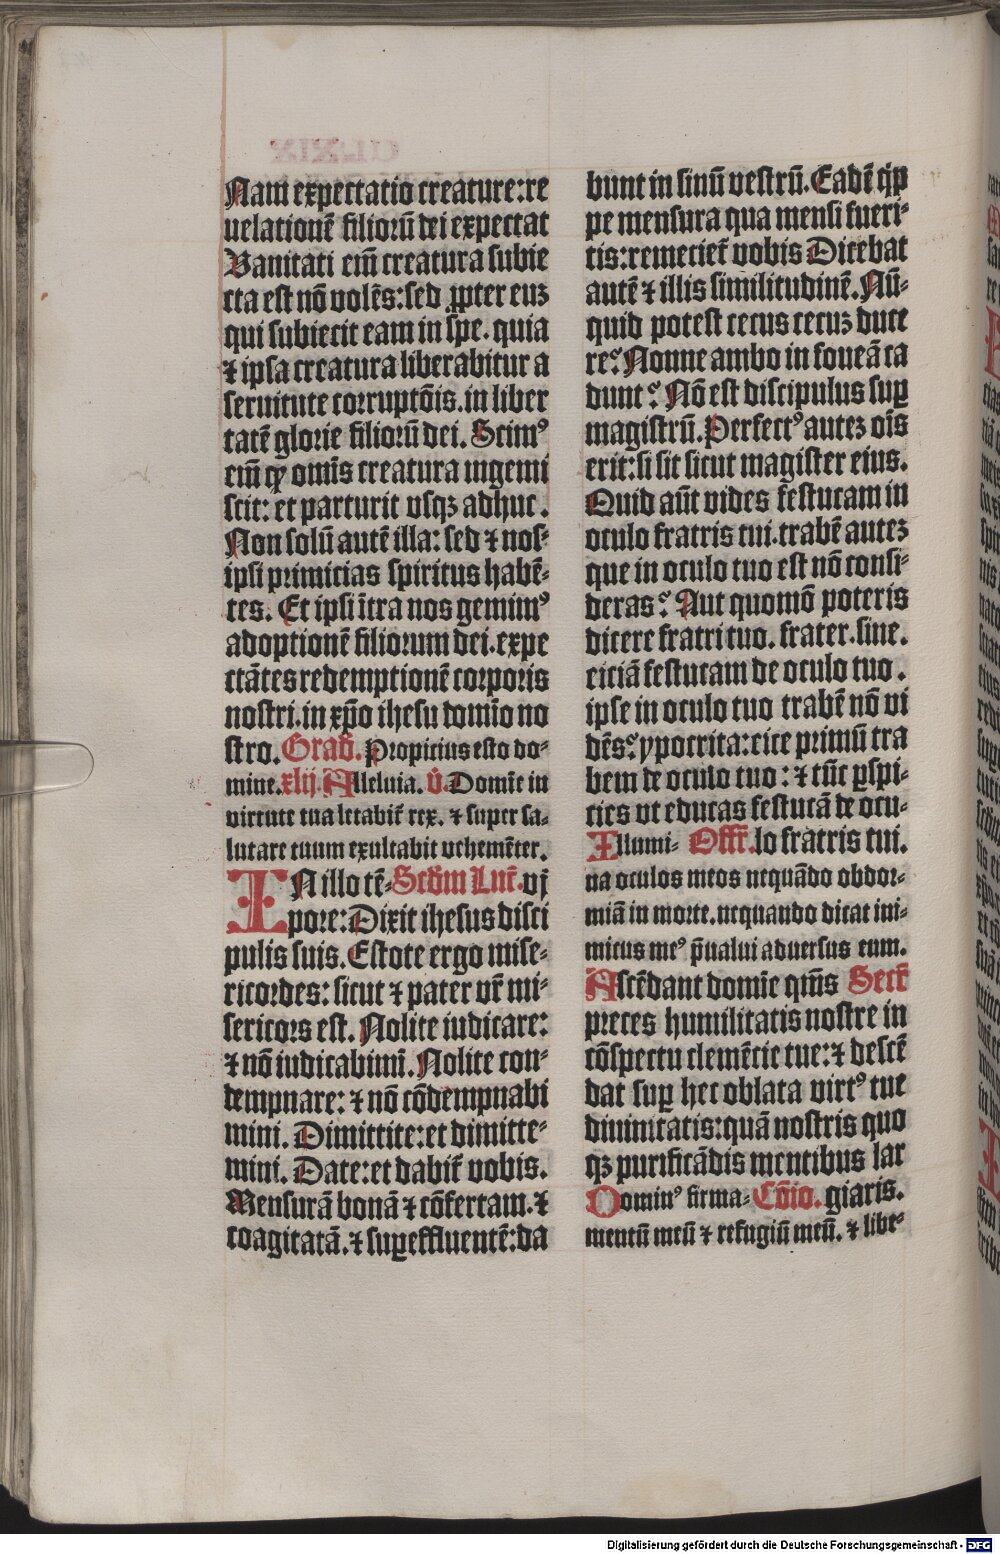 Nam expectatio creature: re
uelationē filioꝝ dei expectat
Vanitati eim̄ creatura subie
cta est nō volēs: sed ꝓpter euꝫ
qui subiecit eam in spe. quia
⁊ ipsa creatura liberabitur a
seruitute corruptōis. in liber
tatē glorie filiorū dei. Scimꝰ
eim̄ ꝙ omīs creatura ingemi
scit: et parturit vsqꝫ adhuc.
Non solū autē illa: sed ⁊ nos-
ipsi primicias spiritus habē-
tes. Et ipsi ītra nos gemimꝰ
adoptionē filiorum dei. expe
ctātes redemptionē corporis
nostri. in xp̄o ihesu domīo no
stro. Grad̄. Propicius esto do-
mine. xlij. Alleluia. v̄. Domīe in
virtute tua letabit̄ rex. ⁊ super sa-
lutare tuum exultabit vehemēter.
IN illo tē- Scd̄m Luc̄. vj
pore: Dixit ihesus disci
pulis suis. Estote ergo mise-
ricordes: sicut ⁊ pater vr̄ mi-
sericors est. Nolite iudicare:
⁊ nō iudicabimī. Nolite con-
dempnare: ⁊ nō cōdempnabi
mini. Dimittite: et dimitte-
mini. Date: et dabit̄ vobis.
Mensurā bonā ⁊ cōfertam. ⁊
coagitatā. ⁊ suꝑeffluentē: da
bunt in sinū vestrū. Eadē qip
pe mensura qua mensi fueri-
tis: remeciet̄ vobis Dicebat
autē ⁊ illis similitudinē. Nū-
quid potest cecus cecuꝫ duce
re? Nonne ambo in foueā ca
dunt? Nō est discipulus suꝑ
magistrū. Perfectꝰ auteꝫ oīs
erit: si sit sicut magister eius.
Quid aūt vides festucam in
oculo fratris tui. trabē auteꝫ
que in oculo tuo est nō consi-
deras? Aut quomō poteris
dicere fratri tuo. frater. sine.
eiciā festucam de oculo tuo.
ipse in oculo tuo trabē nō vi
dēs? ypocrita: eice primū tra
bem de oculo tuo: ⁊ tūc ꝑspi-
cies vt educas festucā de ocu-
Illumi- Offr̄. lo fratris tui.
na oculos meos nequādo obdor-
miā in morte. nequando dicat ini-
micus meꝰ p̄ualui aduersus eum.
Ascēdant domīe qm̄s Secr̄
preces humilitatis nostre in
cōspectu clemētie tue: ⁊ descē
dat suꝑ hec oblata virtꝰ tue
diuinitatis: quā nostris quo
qꝫ purificādis mentibus lar
Dominꝰ firma- Cōio. giaris.
mentū meū ⁊ refugiū meū. ⁊ libe-
Digitalisierung gefördert durch die Deutsche Forschungsgemeinschaft - DFG